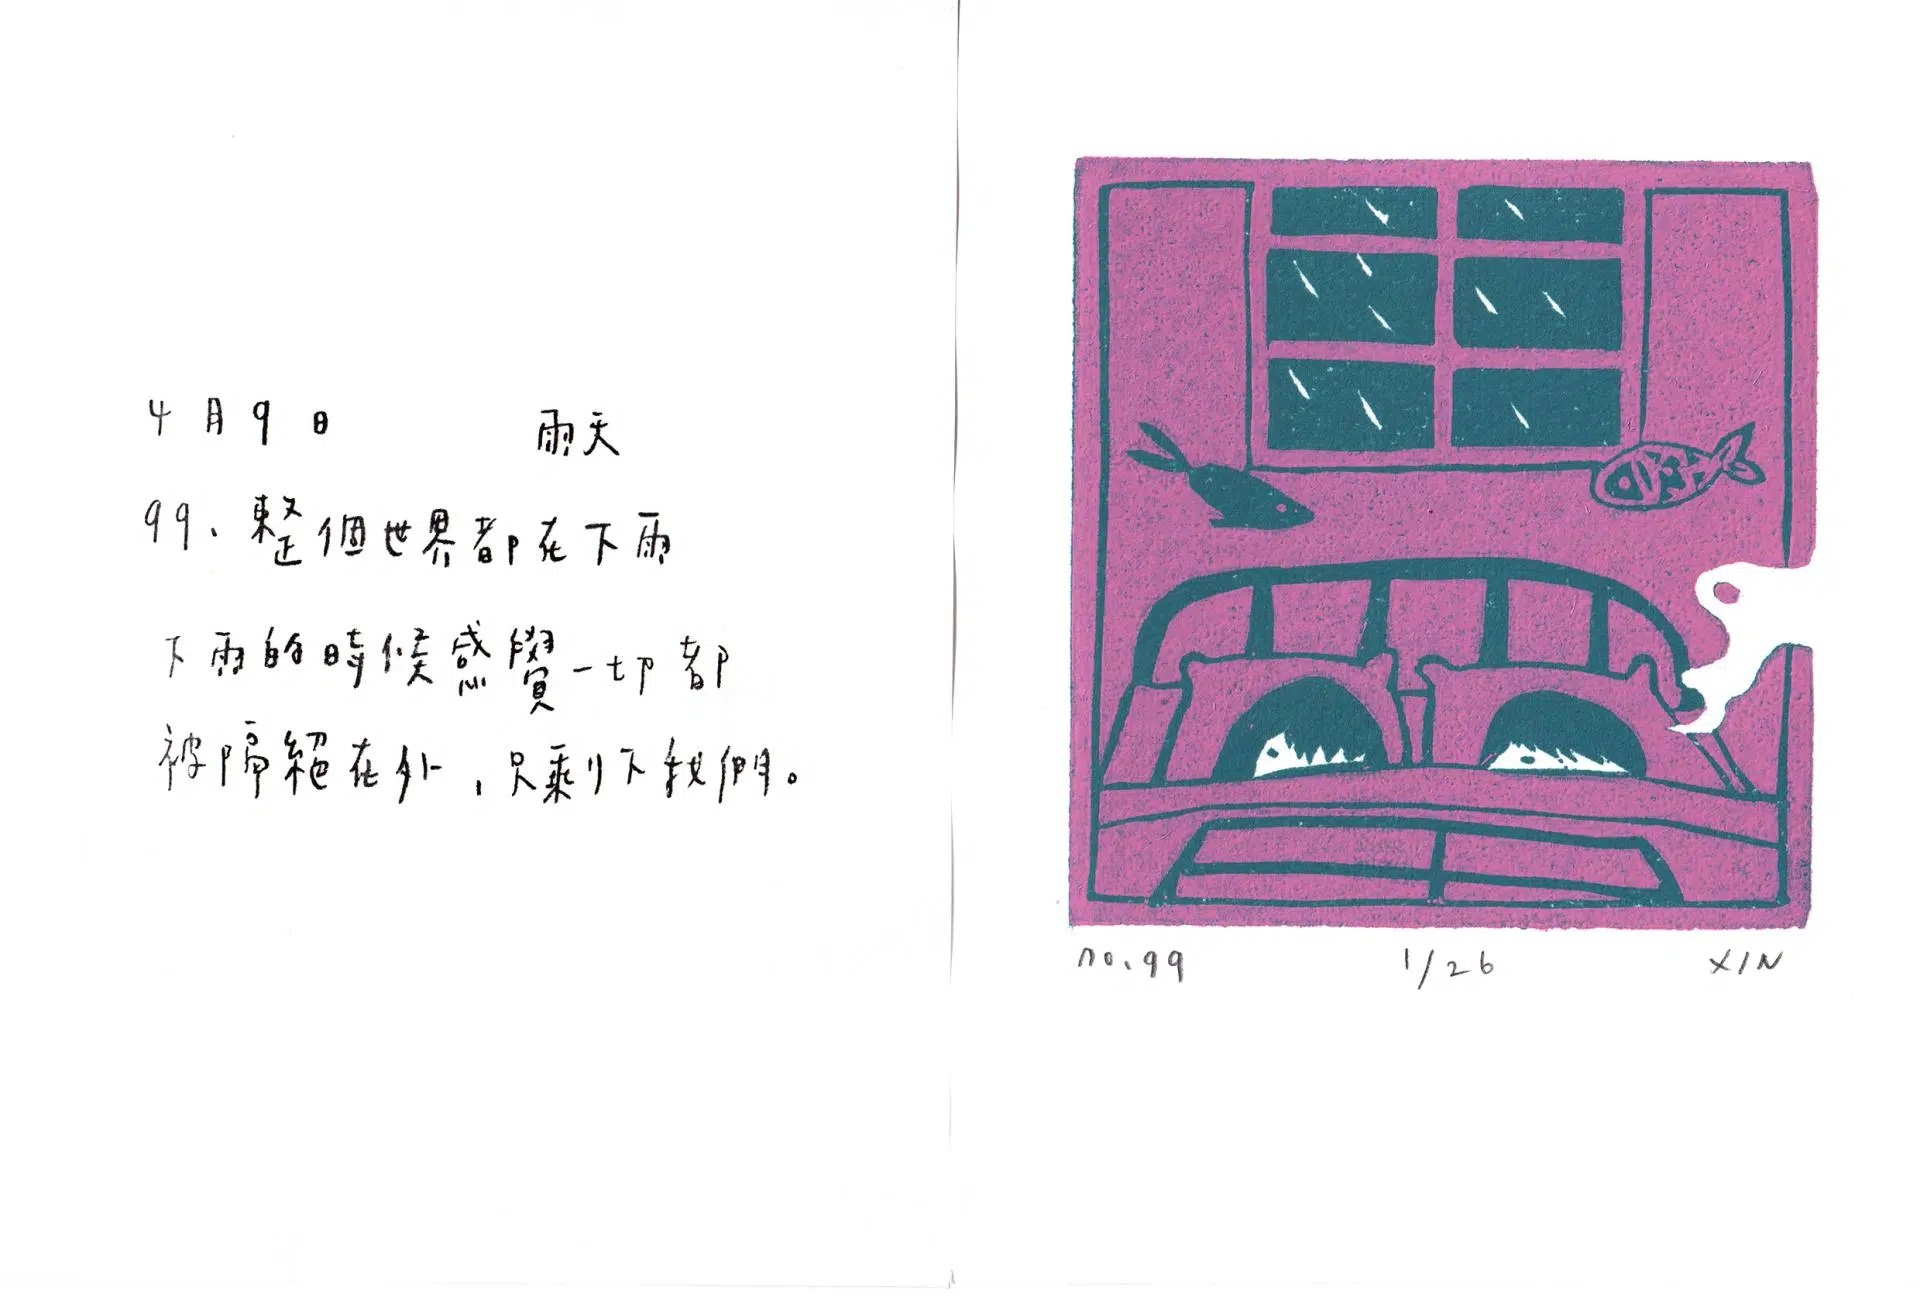 4月9日 雨天
99、整個世界都在下雨
下雨的時候感覺一切都
被隔絕在外,只剩下我們。
no.99 1/26 XIN